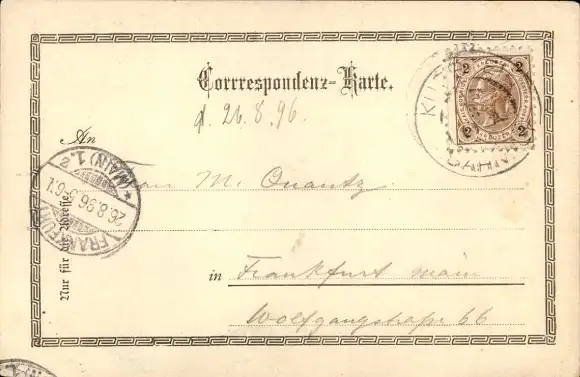 Corrrespondenz-Karte.
d. 26.8.96.
An
M. Quantz
in Frankfurt Main
Wolfgangstraße 66
Nur für die Adresse.
FRANKFURT (MAIN) 1.
26.8.96
2 2
2 2